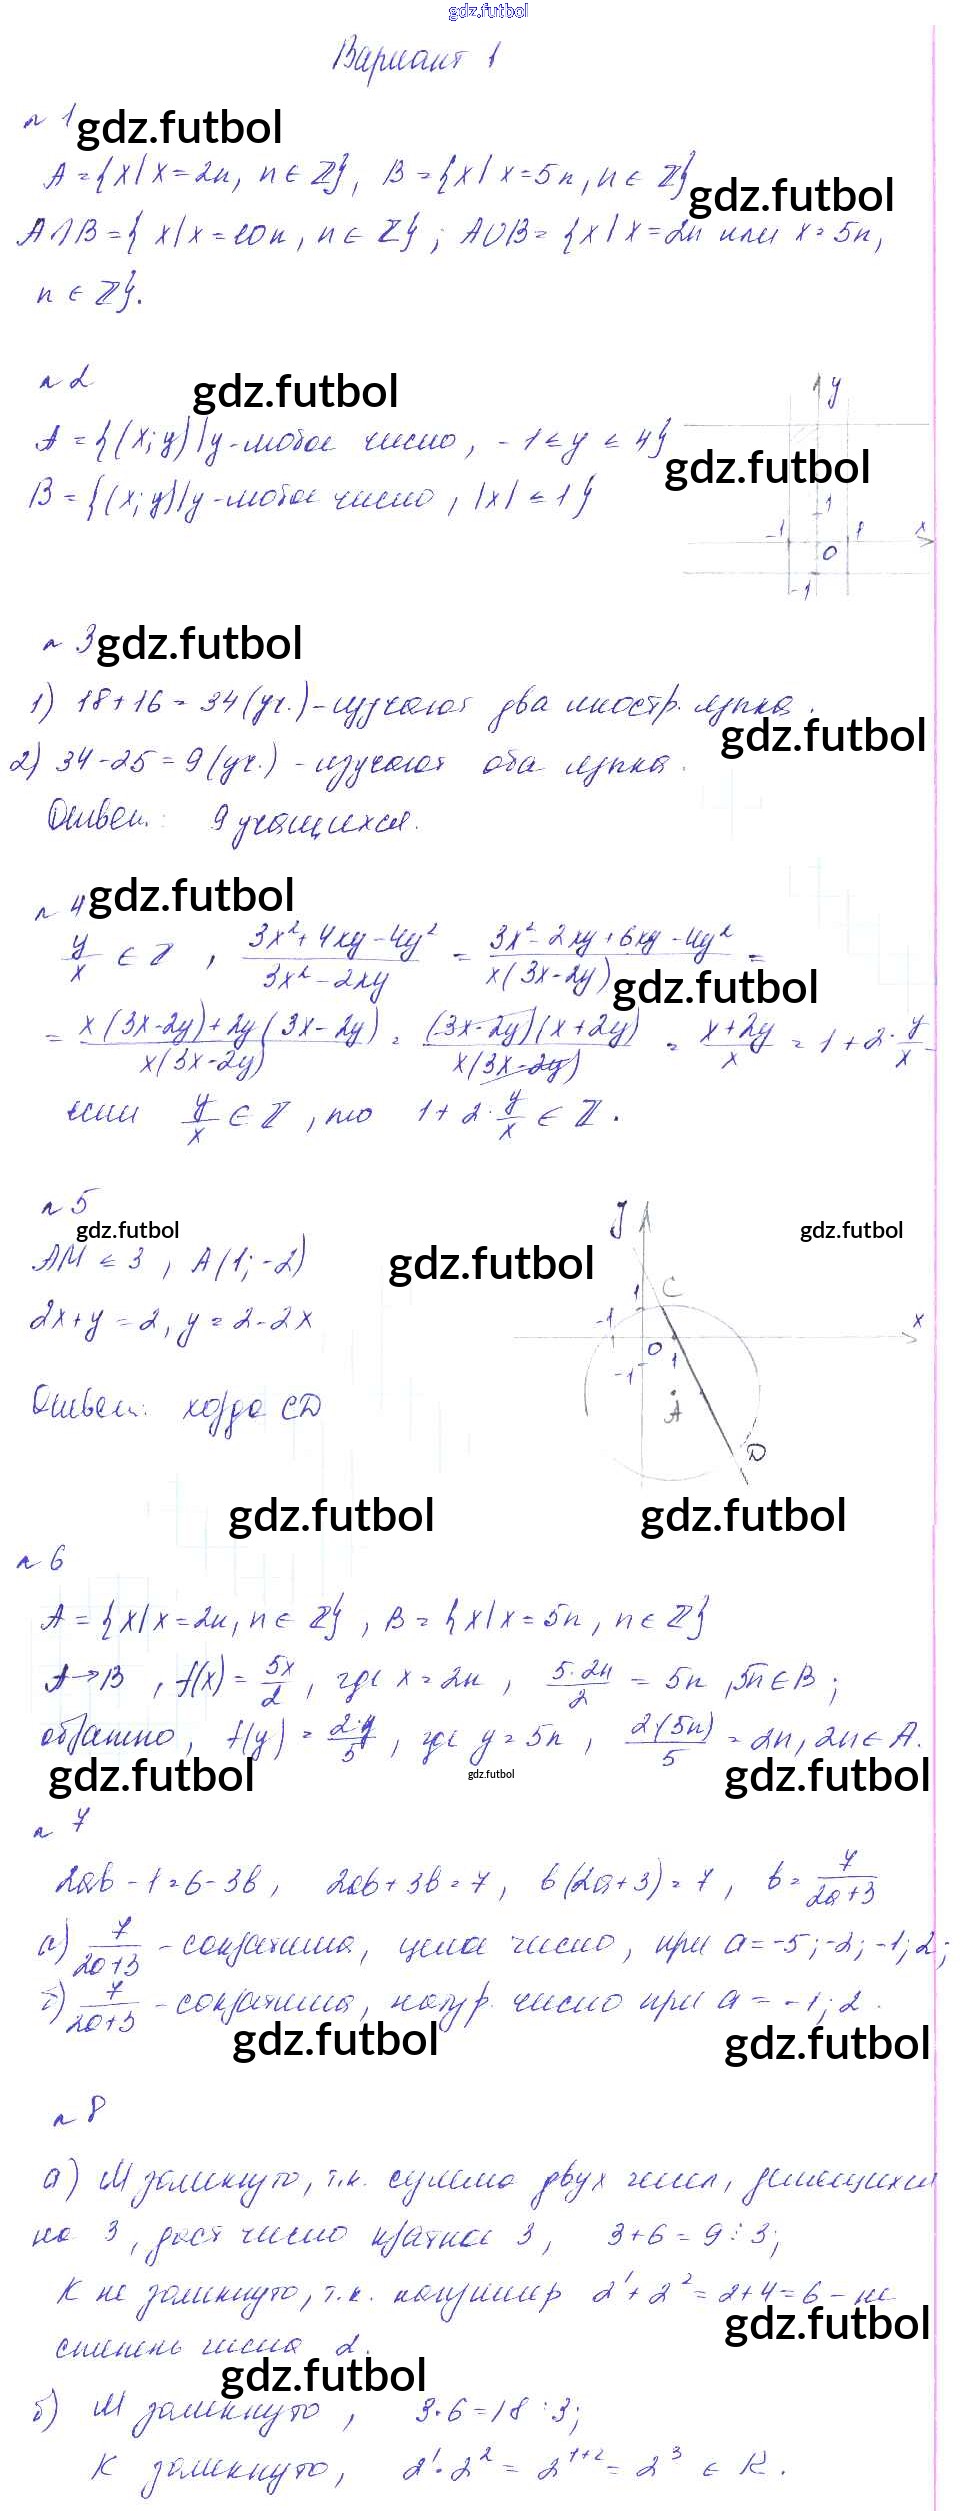 gdz.futbol
Вариант 1
n 1 gdz.futbol
A = {x | x = 2n, n ∈ Z}, B = {x | x = 5n, n ∈ Z}
gdz.futbol
A∩B = {x | x = 10n, n ∈ Z}; A∪B = {x | x = 2n или x = 5n,
n ∈ Z}.
n 2 gdz.futbol
y
A = {(x; y) | y - любое число, -1 ≤ y ≤ 4}
gdz.futbol
B = {(x; y) | y - любое число, |x| ≤ 1}
1
-1 0 1 x
-1
n 3 gdz.futbol
1) 18 + 16 = 34 (уч.) - изучают два иностр. языка.
gdz.futbol
2) 34 - 25 = 9 (уч.) - изучают оба языка.
Ответ: 9 учащихся.
n 4 gdz.futbol
y/x ∈ Z, (3x² + 4xy - 4y²)/(3x² - 2xy) = (3x² - 2xy + 6xy - 4y²)/(x(3x - 2y)) =
gdz.futbol
= (x(3x - 2y) + 2y(3x - 2y))/(x(3x - 2y)) = ((3x - 2y)(x + 2y))/(x(3x - 2y)) = (x + 2y)/x = 1 + 2·y/x -
если y/x ∈ Z, то 1 + 2·y/x ∈ Z.
n 5
gdz.futbol
gdz.futbol
AM ≤ 3, A(1; -2)
gdz.futbol
2x + y = 2, y = 2 - 2x
y
1 C
-1 0 1 x
-1
A
D
Ответ: хорда CD
gdz.futbol gdz.futbol
n 6
A = {x | x = 2n, n ∈ Z}, B = {x | x = 5n, n ∈ Z}
A → B, f(x) = 5x/2, где x = 2n, 5·2n/2 = 5n, 5n ∈ B;
обратно, f(y) = 2·y/5, где y = 5n, 2·(5n)/5 = 2n, 2n ∈ A.
gdz.futbol gdz.futbol gdz.futbol
n 7
2ab - 1 = 6 - 3b, 2ab + 3b = 7, b(2a + 3) = 7, b = 7/(2a + 3)
а) 7/(2a + 3) - сократима, цело число, при a = -5; -2; -1; 2;
б) 7/(2a + 3) - сократима, натур. число при a = -1; 2.
gdz.futbol gdz.futbol
n 8
а) M замкнуто, т.к. сумма двух чисел, делящихся
на 3, даст число кратное 3, 3 + 6 = 9 ⋮ 3;
K не замкнуто, т.к. например 2¹ + 2² = 2 + 4 = 6 - не
gdz.futbol
степень числа 2.
gdz.futbol
б) M замкнуто, 3·6 = 18 ⋮ 3;
K замкнуто, 2¹·2² = 2¹⁺² = 2³ ∈ K.